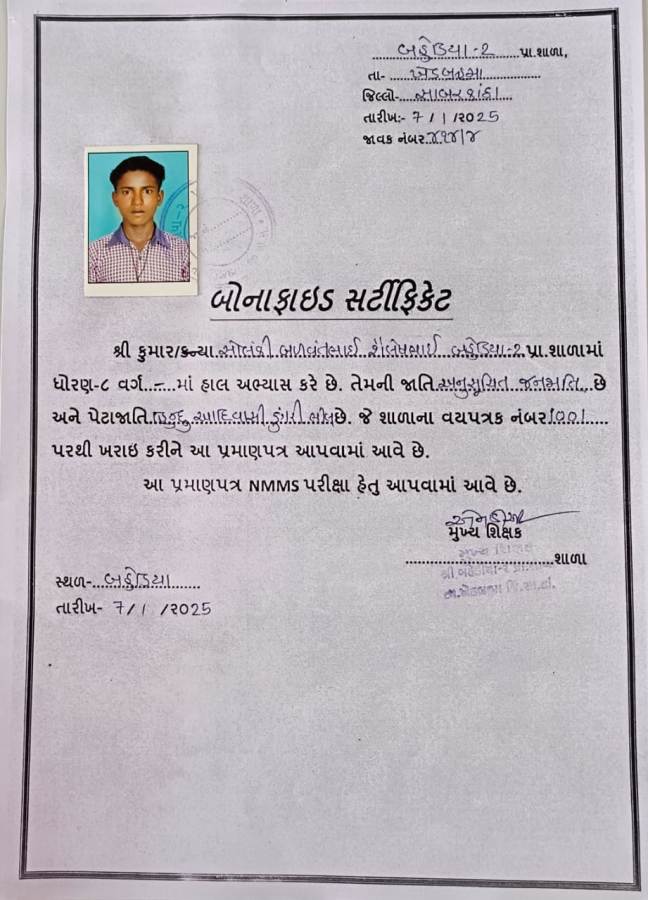 બહેડિયા-2 પ્રા.શાળા,
તા- ખેડબ્રહ્મા
જિલ્લો- સાબરકાંઠા
તારીખ:- 7/1/2025
જાવક નંબર
બોનાફાઇડ સર્ટીફિકેટ
શ્રી કુમાર/કન્યા સોલંકી બળવંતભાઈ શૈલેષભાઈ બહેડિયા-2 પ્રા.શાળામાં
ધોરણ-૮ વર્ગ - માં હાલ અભ્યાસ કરે છે. તેમની જાતિ અનુસૂચિત જનજાતિ છે
અને પેટાજાતિ હિન્દુ આદિવાસી ડુંગરી ભીલ છે. જે શાળાના વયપત્રક નંબર 1001
પરથી ખરાઇ કરીને આ પ્રમાણપત્ર આપવામાં આવે છે.
આ પ્રમાણપત્ર NMMS પરીક્ષા હેતુ આપવામાં આવે છે.
મુખ્ય શિક્ષક
શાળા
મુખ્ય શિક્ષક
સ્થળ- બહેડિયા
તારીખ- 7/1/2025